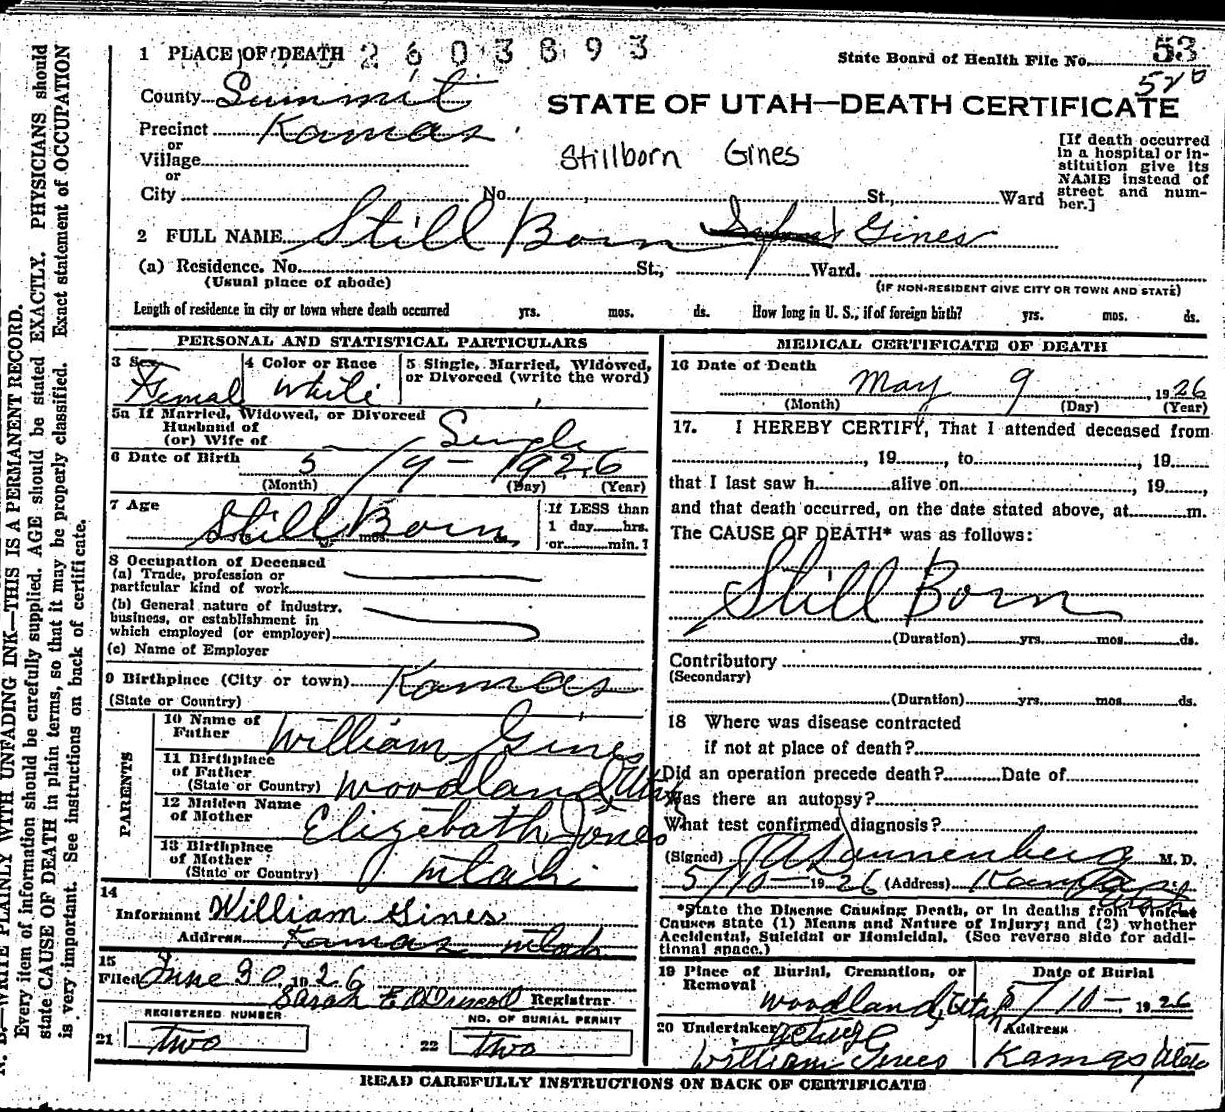 1 PLACE OF DEATH 2603893
State Board of Health File No. 53
520
County Summit
STATE OF UTAH—DEATH CERTIFICATE
Precinct Kamas
or
Village
or
City No. St., Ward
Stillborn Gines
[If death occurred
in a hospital or in-
stitution give its
NAME instead of
street and num-
ber.]
2 FULL NAME Still Born Gines
(a) Residence. No. St., Ward.
(Usual place of abode)
(IF NON-RESIDENT GIVE CITY OR TOWN AND STATE)
Length of residence in city or town where death occurred yrs. mos. ds. How long in U. S., if of foreign birth? yrs. mos. ds.
PERSONAL AND STATISTICAL PARTICULARS
3 Sex 4 Color or Race 5 Single, Married, Widowed,
or Divorced (write the word)
Female White
5a If Married, Widowed, or Divorced
Husband of
(or) Wife of
Single
6 Date of Birth 5 / 9 - 1926
(Month) (Day) (Year)
7 Age Still Born
If LESS than
1 day hrs.
or min.?
8 Occupation of Deceased
(a) Trade, profession or
particular kind of work
(b) General nature of industry,
business, or establishment in
which employed (or employer)
(c) Name of Employer
9 Birthplace (City or town) Kamas
(State or Country)
PARENTS
10 Name of
Father William Gines
11 Birthplace
of Father
(State or Country) Woodland, Utah
12 Maiden Name
of Mother Elizebath Jones
13 Birthplace
of Mother
(State or Country) Utah
14
Informant William Gines
Address Kamas Utah
15
Filed June 30 1926
Sarah E O'Driscoll Registrar
REGISTERED NUMBER
21 two
NO. OF BURIAL PERMIT
22 two
MEDICAL CERTIFICATE OF DEATH
16 Date of Death
May 9, 1926
(Month) (Day) (Year)
17. I HEREBY CERTIFY, That I attended deceased from
, 19 , to , 19
that I last saw h alive on , 19 ,
and that death occurred, on the date stated above, at m.
The CAUSE OF DEATH* was as follows:
Still Born
(Duration) yrs. mos. ds.
Contributory
(Secondary)
(Duration) yrs. mos. ds.
18 Where was disease contracted
if not at place of death?
Did an operation precede death? Date of
Was there an autopsy?
What test confirmed diagnosis?
(Signed) Dannenberg M. D.
5/10 - 1926 (Address) Kamas Utah
*State the Disease Causing Death, or in deaths from Violent
Causes state (1) Means and Nature of Injury; and (2) whether
Accidental, Suicidal or Homicidal. (See reverse side for addi-
tional space.)
19 Place of Burial, Cremation, or
Removal
Date of Burial
Woodland, Utah 5/10 - 1926
20 Undertaker Address
William Gines Kamas, Utah
READ CAREFULLY INSTRUCTIONS ON BACK OF CERTIFICATE
N. B.—WRITE PLAINLY WITH UNFADING INK—THIS IS A PERMANENT RECORD.
Every item of information should be carefully supplied. AGE should be stated EXACTLY. PHYSICIANS should
state CAUSE OF DEATH in plain terms, so that it may be properly classified. Exact statement of OCCUPATION
is very important. See instructions on back of certificate.